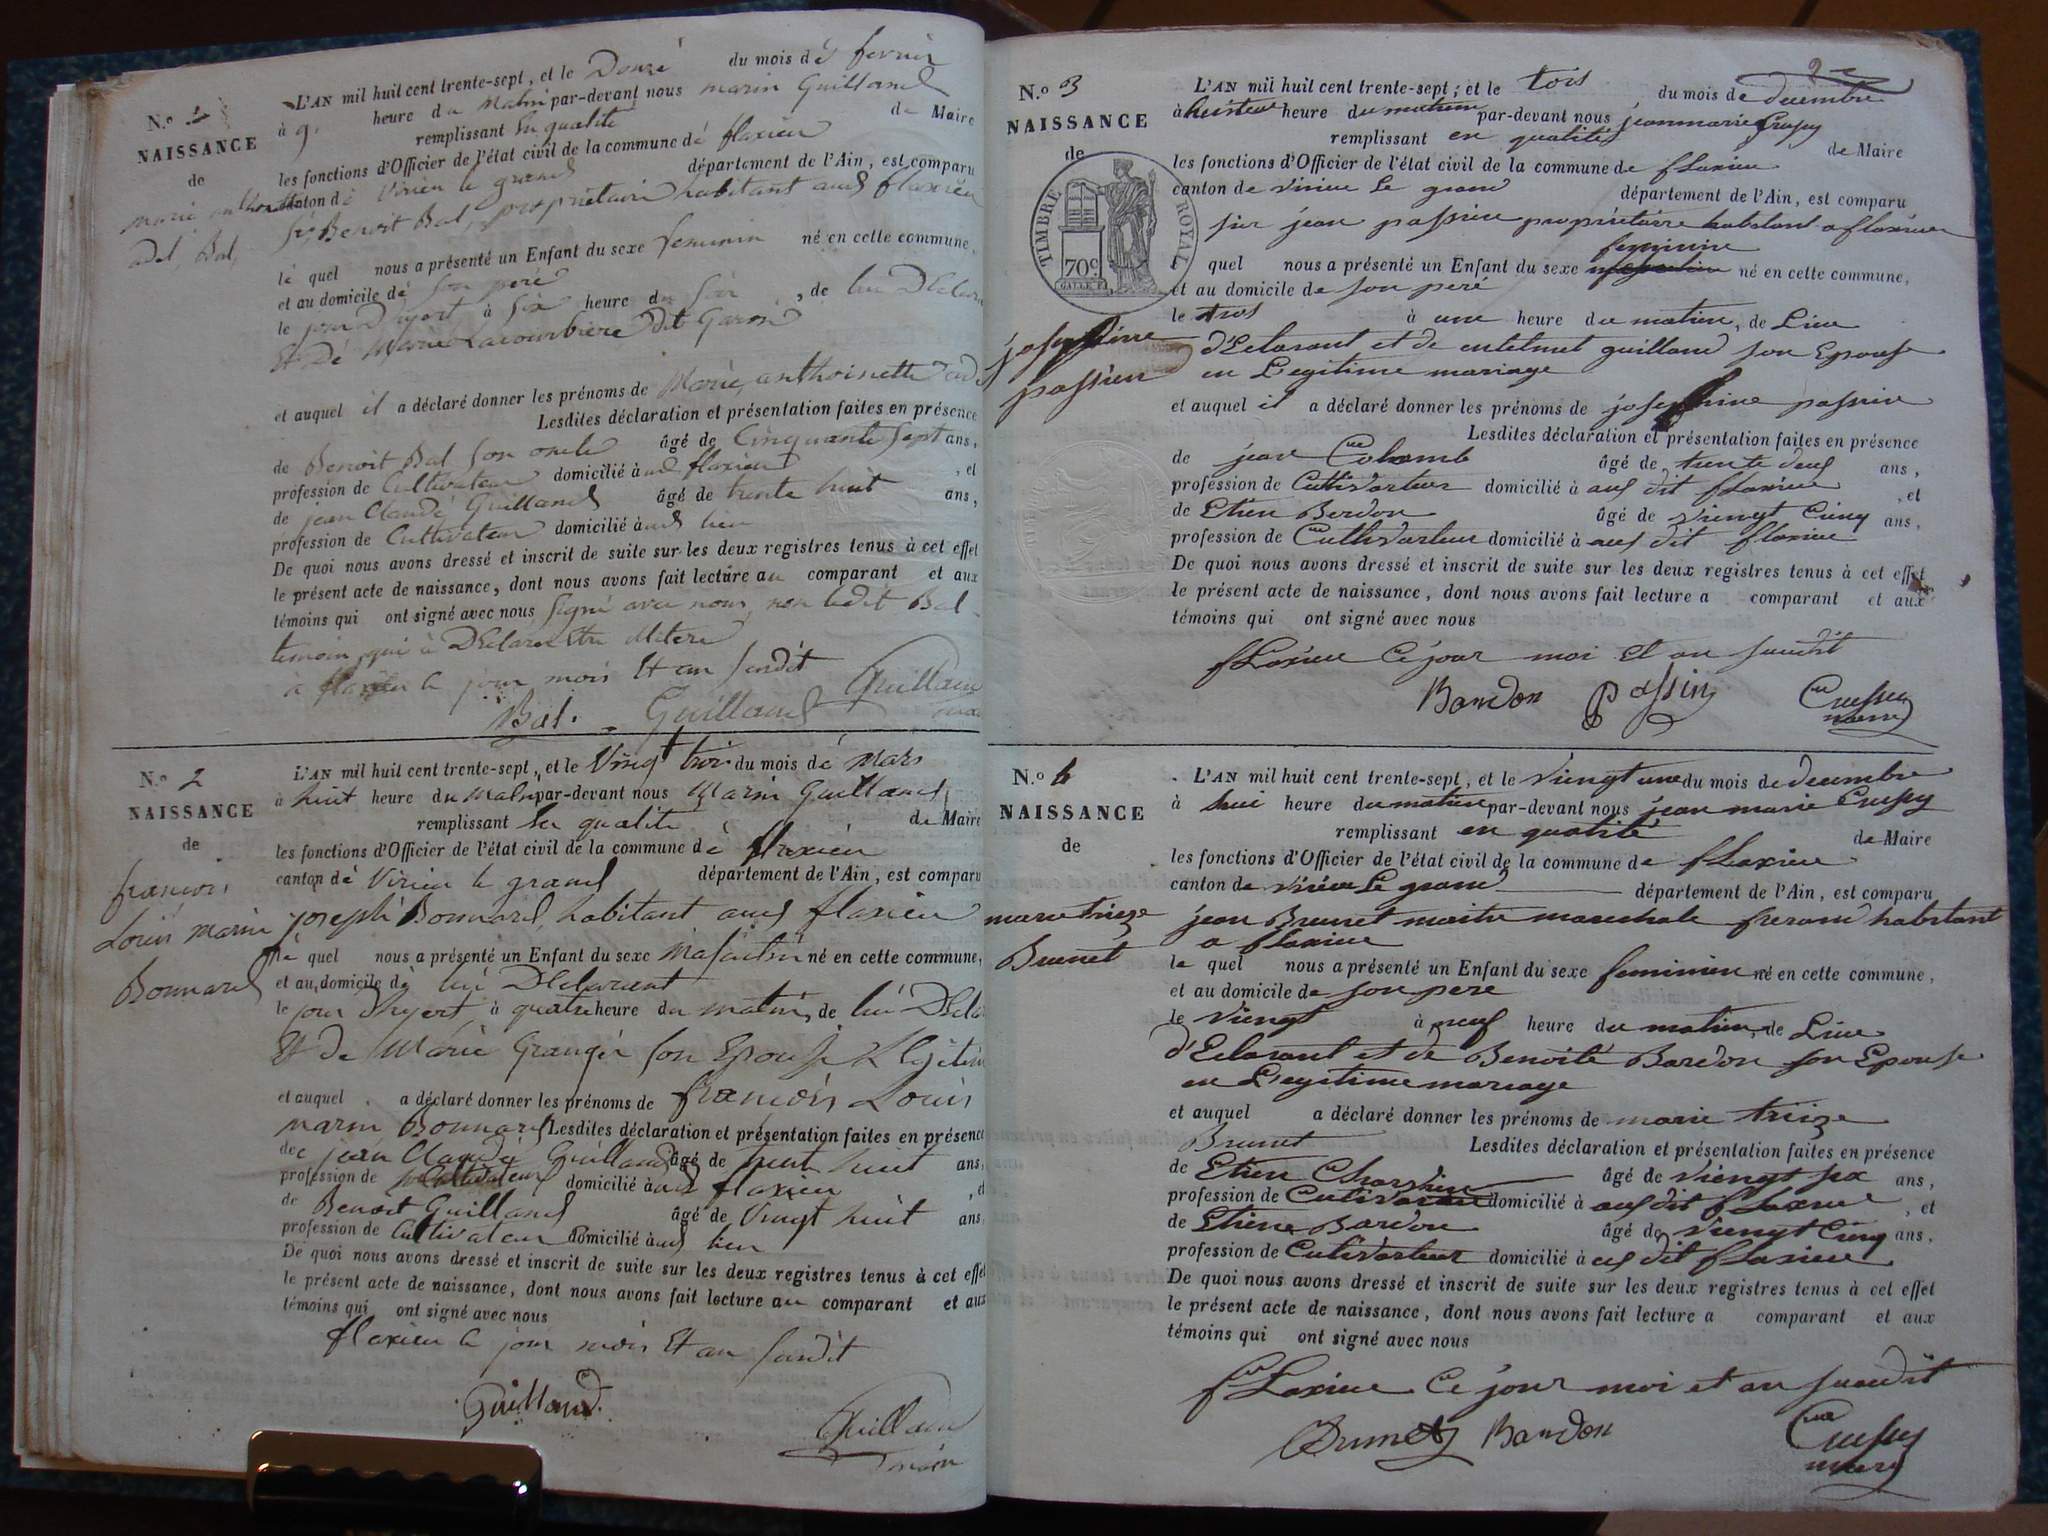 N.o 1
NAISSANCE
de
marie anthoinette
adel, Bal,
L'AN mil huit cent trente-sept, et le Douzé du mois dé fevrier
à 9. heure du Matin par-devant nous marin Guilland
remplissant En qualité de Maire
les fonctions d'Officier de l'état civil de la commune dé flaxieu
canton dé Virieu le grand département de l'Ain, est comparu
Sr. Benoit Bal, propriétaire habitant aud flaxieu
lé quel nous a présenté un Enfant du sexe feminin né en cette commune,
et au domicile dé son peré
le jour D'hyert à Six heure du soir, de lui DEclara
Et Dé Marie Lacourbiere dit Garon
et auquel il a déclaré donner les prénoms de Marie, anthoinette
Lesdites déclaration et présentation faites en présence
de Benoit Bal son oncle âgé de Cinquante Sept ans,
profession de Cultivateur domicilié à aud flaxieu, et
de jean Claudé Guilland âgé de trente huit ans,
profession de Cultivateur domicilié à aud lieu
De quoi nous avons dressé et inscrit de suite sur les deux registres tenus à cet effet
le présent acte de naissance, dont nous avons fait lecture au comparant et aux
témoins qui ont signé avec nous signé avec nous, non ledit Bal
temoin, qui à DEclaré
à flaxieu le jour mois Et an susdit
Bal. Guilland Guilland
N.o 2
NAISSANCE
de
francois,
Louis marin
Bonnard
L'AN mil huit cent trente-sept, et le Vingt trois du mois dé Mars
à huit heure du Matin par-devant nous Marin Guilland
remplissant En qualité de Maire
les fonctions d'Officier de l'état civil de la commune dé flaxieu
canton dé Virieu le grand département de l'Ain, est comparu
joseph Bonnard, habitant aud flaxieu
lé quel nous a présenté un Enfant du sexe Masculin né en cette commune,
et au domicile dé lui DEclarant
le jour D'hyert, à quatre heure du matin, de lui DEcla
Et De Marie Grangér son Epouse Legitim
et auquel a déclaré donner les prénoms de francois Louis
marin Bonnard Lesdites déclaration et présentation faites en présence
de jean Claudé Guilland âgé de trent huit ans,
profession de Cultivateur domicilié à aud flaxieu, et
de Benoit Guilland âgé de Vingt huit ans,
profession de Cultivateur domicilié à aud lieu
De quoi nous avons dressé et inscrit de suite sur les deux registres tenus à cet effet
le présent acte de naissance, dont nous avons fait lecture au comparant et aux
témoins qui ont signé avec nous
flaxieu le jour mois Et an susdit
Guilland. Guilland
N.o 3
NAISSANCE
de
TIMBRE ROYAL
70c
josephine
passien
L'AN mil huit cent trente-sept; et le tois du mois de decembre
à heure du matin par-devant nous jeanmarie Crussy
remplissant en qualités de Maire
les fonctions d'Officier de l'état civil de la commune de fLaxieu
canton de virieu Le grand département de l'Ain, est comparu
sieur jean passien propriétaire habitant a flaxieu
feminine
quel nous a présenté un Enfant du sexe né en cette commune,
et au domicile de son peré
le trois à une heure du matien, de Lieu
d'Eclarant et de guilland son Epouse
en Legitime mariage
et auquel il a déclaré donner les prénoms de josephine passien
Lesdites déclaration et présentation faites en présence
de jean Colomb âgé de trente deux ans,
profession de Cultivarteur domicilié à aus dit fLaxieu, et
de Etien Berdon âgé de viengt Cienq ans,
profession de Cultivarteur domicilié à aus dit flaxieu
De quoi nous avons dressé et inscrit de suite sur les deux registres tenus à cet effet
le présent acte de naissance, dont nous avons fait lecture a comparant et aux
témoins qui ont signé avec nous
fLaxieu Ce jour moi Et an suudit
Bardon Passin Crussy
maire
N.o 4
NAISSANCE
de
marie trieze
Brunet
L'AN mil huit cent trente-sept, et le viengt une du mois de decembre
à hui heure du matien par-devant nous jean marie Crussy
remplissant en qualité de Maire
les fonctions d'Officier de l'état civil de la commune de fLaxieu
canton de virieu Le grand département de l'Ain, est comparu
jean Brunet maitre marechale ferand habitant
a flaxieu
le quel nous a présenté un Enfant du sexe feminien né en cette commune,
et au domicile de son pere
le viengt à neuf heure du matien, de Lieu
d'Eclarant et de Benoite Bardon son Epouse
en Legitime mariage
et auquel a déclaré donner les prénoms de marie trieze
Brunet Lesdites déclaration et présentation faites en présence
de Etien Charvin âgé de viengt six ans,
profession de Cutivarteur domicilié à aus dit fLaxieu, et
de Etiene Bardon âgé de viengt Cienq ans,
profession de Cutivarteur domicilié à aus dit fLaxieu
De quoi nous avons dressé et inscrit de suite sur les deux registres tenus à cet effet
le présent acte de naissance, dont nous avons fait lecture a comparant et aux
témoins qui ont signé avec nous
fLaxieu Ce jour moi et an suudit
Brunet Bardon Crussy
maire